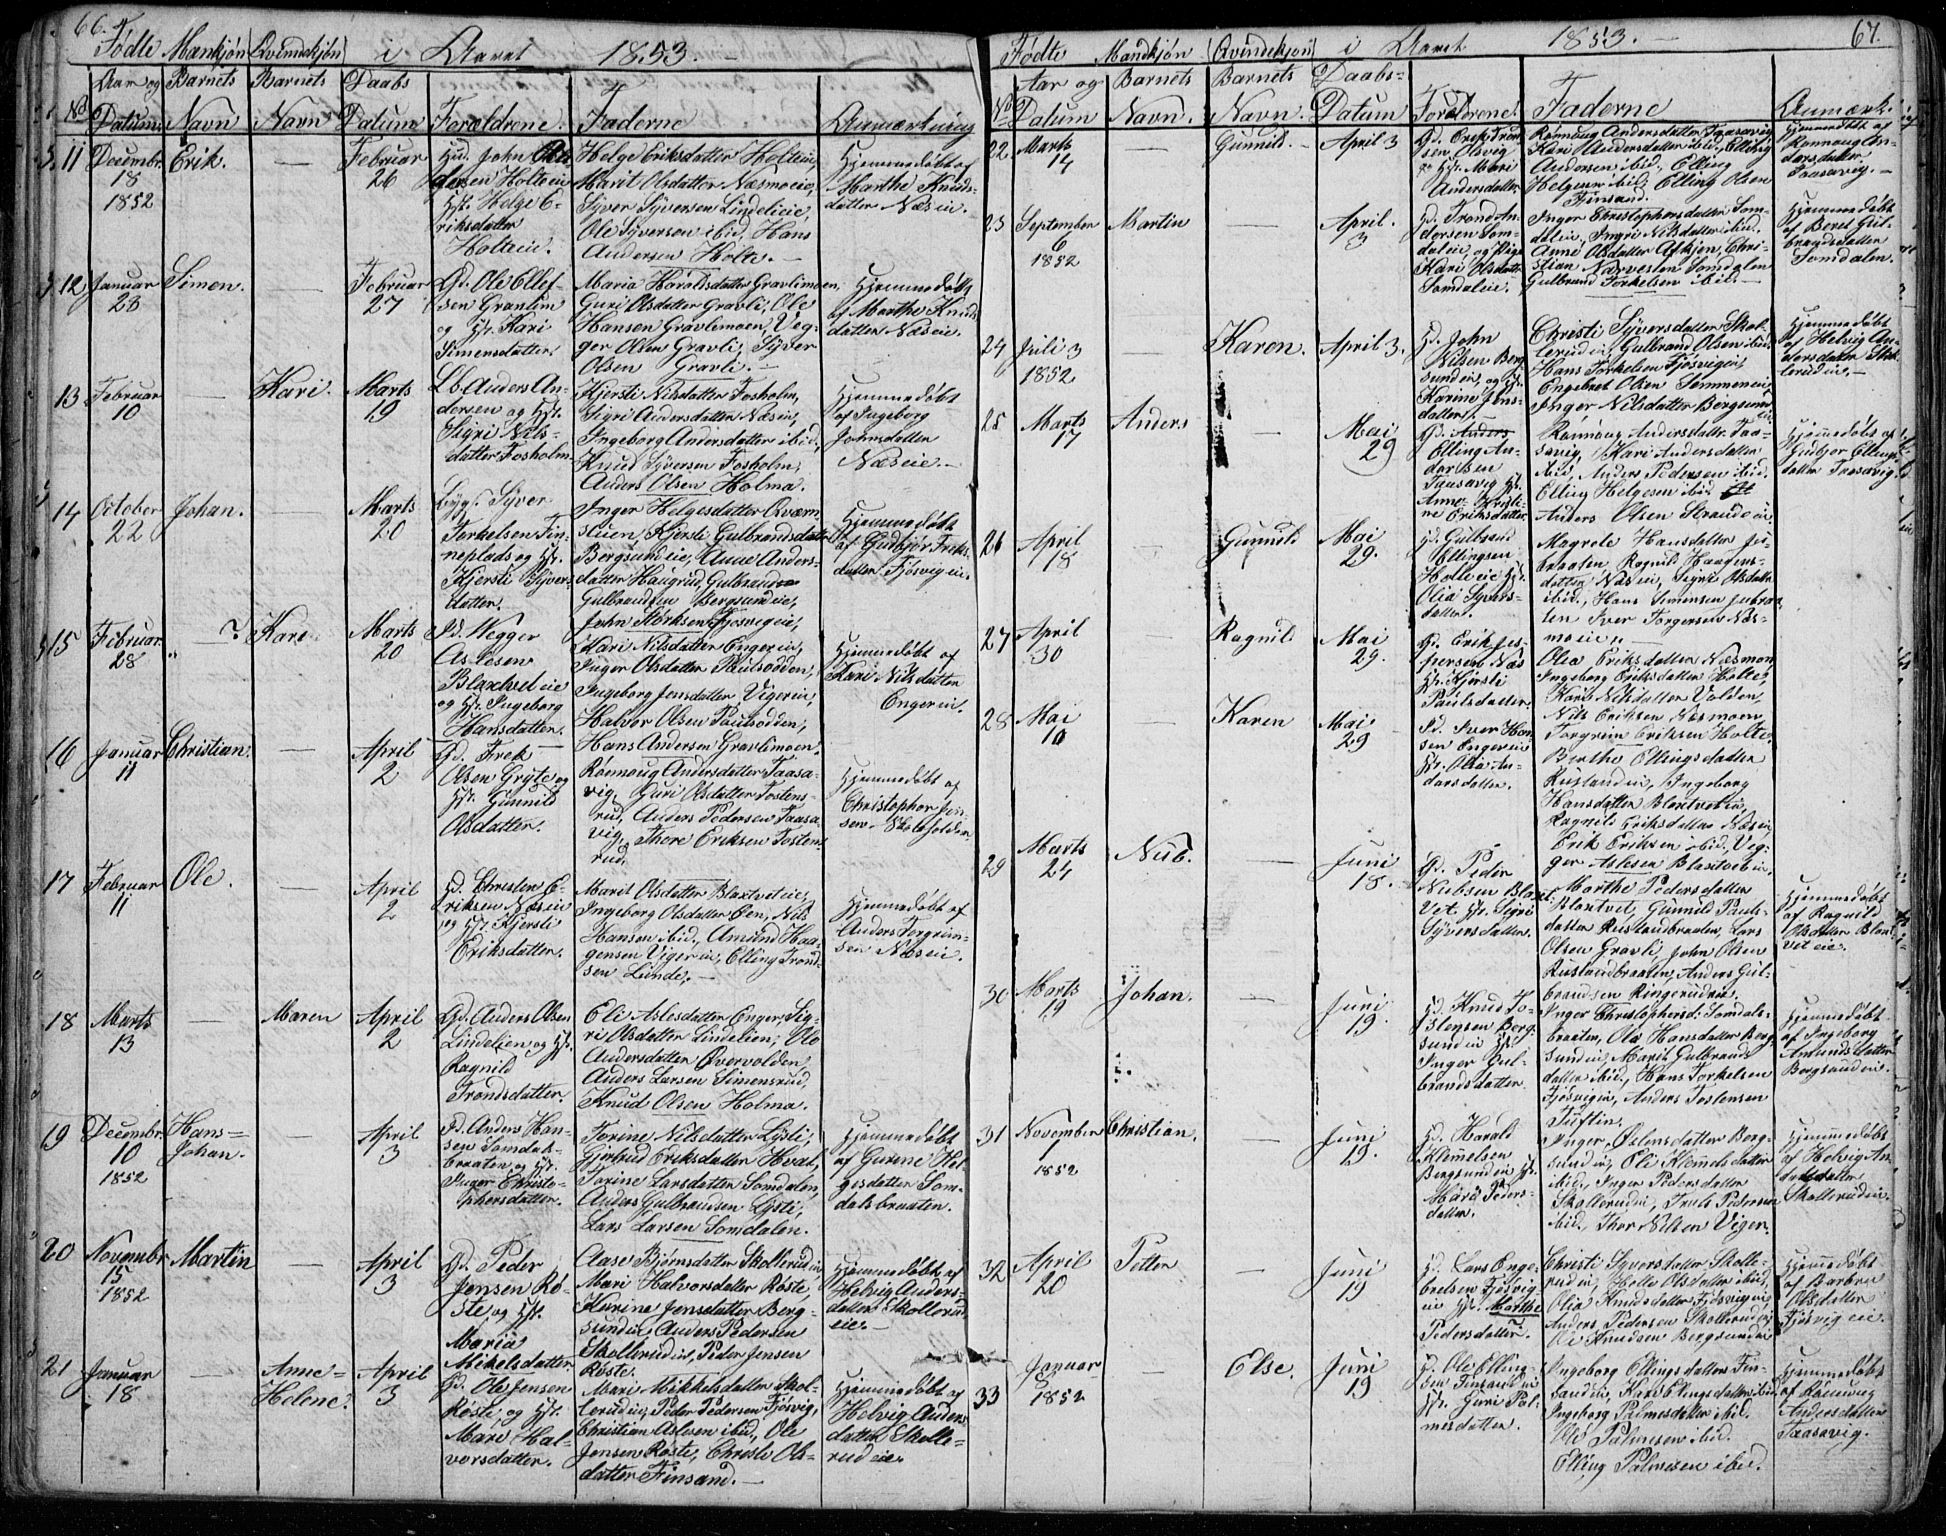 66.
Födte Mankjön Qvindekjön i Aaret 1853.
No Aar og Datum Barnets Navn Barnets Navn Daabs Datum Forældrene Faderne Anmærkning
11 Decembr. 18 1852 Erik. — Februar 26
Helge Eriksdatter Holteie,
Marit Olsdatter Næsmoeie,
Syver Syversen Lindelieie,
Ole Syversen ibid, Hans
Andersen Holte. —
Hjemmedöbt af
Marthe Knuds-
datter Næseie.
12 Januar 28 Simen. — Februar 27
Gd. Ole Ellef-
sen Gravlim
og H. Kari
Simensdatter.
Maria Haraldsdatter Gravlimoen,
Guri Olsdatter Gravli, Ole
Hansen Gravlimoen, Veg-
ger Olsen Gravli, Syver
Olsen Gravli. —
Hjemmedöbt
af Marthe Knuds
datter Næseie.
13 Februar 10 — Kari. Marts 19
Lb. Anders An-
dersen og H.
Sigri Nils-
datter Fosholm
Kjersti Nilsdatter Fosholm,
Sigri Andersdatter Næseie,
Ingeborg Andersdatter ibid,
Knud Syversen Fosholm,
Anders Olsen Holma.
Hjemmedöbt
af Ingeborg
Johnsdatter
Næseie. —
14 October 22 Johan. — Marts 20
Syver
Torkelsen Fin-
neplads og H.
Kjersti Syvers-
datter.
Inger Helgesdatter Qværn-
stuen, Kjersti Gulbrandsdatter
Bergsundeie, Anne Anders-
datter Haugrud, Gulbrand
Gulbrandsen Bergsundeie,
John Størksen Fjösvigeie,
Hjemmedöbt
af Gudbjör Eriks-
datter Fjösvigeie.
15 Februar 28 " ? Kari Marts 20
Id. Vegger
Aslesen
Blaxtveteie
og H. Ingeborg
Hansdatter.
Kari Nilsdatter Engereie,
Inger Olsdatter Paulsodden,
Ingeborg Jensdatter Vigereie,
Halvor Olsen Paulsodden,
Hans Andersen Gravlimoen.
Hjemmedöbt af
Kari Nilsdatter
Engereie.
16 Januar 11 Christian. — April 2
Gd. Erek
Olsen Gryte og
H. Gunnild
Olsdatter.
Rönnoug Andersdatter Taasa-
vig, Guri Olsdatter Tostens-
rud, Anders Pedersen Taasa-
vig, Thore Eriksen Tostens-
rud.
Hjemmedöbt af
Christopher Jen-
sen
17 Februar 11 Ole. — April 2
Gd. Christen E-
riksen Næseie
og H. Kjersti
Eriksdatter.
Marit Olsdatter Blaxtveteie,
Ingeborg Olsdatter Öen, Nils
Hansen ibid, Amund Haa-
gensen Vigereie, Elling Trond-
sen Linde. —
Hjemmedöbt af
Anders Torgrim-
sen Næseie.
18 Marts 13 — Maren April 2
Gd. Anders Olsen
Lindelien og H.
Ragnild
Trondsdatter.
Eli Aslesdatter Enger, Sig-
ri Olsdatter Lindelien, Olo
Andersdatter Övervolden,
Anders Larsen Simensrud,
Knud Olsen Holma.
19 Decembr. 10 1852 Hans= Johan. — April 3
Id. Anders Han-
sen Somdals-
braaten og H.
Inger Christo-
phersdatter.
Torine Nilsdatter Lysti,
Gjertrud Eriksdatter Hval,
Torine Larsdatter Somdalen,
Anders Gulbrandsen Lysti,
Lars Larsen Somdalen.
Hjemmedöbt
af Gurene Hel-
gesdatter Som-
dalsbraaten.
20 Novembr. 15 1852 Martin — April 3
Gd. Peder
Jensen Rö-
ste og H.
Maria
Mikelsdatter
Aase Bjørnsdatter Skollerudeie
Mari Halvorsdatter Röste,
Karine Jensdatter Berg-
sundeie, Anders Pedersen
Skollerudeie, Peder Jensen
Röste.
Hjemmedöbt af
Helvig Anders-
datter Skollerud
eie. —
21 Januar 18 — Anne= Helene. April 3
Gd. Ole Jensen
Röste, og H.
Mari Hal-
vorsdatter.
Mari Mikkelsdatter Skol-
lerudeie, Peder Pedersen Fjösvig,
Christian Aslesen ibid, Ole
Jensen Röste, Christi Ols-
datter Finsand. —
Hjemmedöbt af
Helvig Anders
datter Skolle-
rudeie.
67.
Födte Mandkjön Qvindekjön i Aaret 1853. —
No Aar og Datum Barnets Navn. Barnets Navn. Daabs- Datum Forældrene. Faderne Anmærk.
22 Marts 14 — Gunnild. — April 3
Gd. Erik Trond-
sen Olsvig
og H. Mari
Andersdatter
Rönnoug Andersdatter Taasavig
Kari Andersdatter ibid, Elling
Andersen ibid, Elling
Helgesen ibid, Elling Olsen
Finsand.
Hjemmedöbt af
Rönnoug An-
dersdatter
Taasavig. —
23 September 6 1852 Martin — April. 3
Gd. Trond An-
dersen Som-
daleie, og Pige
Kari Olsdatter
Somdaleie.
Inger Christophersdatter Som-
daleie, Ingri Nilsdatter ibid,
Anne Olsdatter Askjen, Chri-
stian Narvesten Somdalen
Gulbrand Torkelsen ibid. —
Hjemmedöbt
af Berel Gul-
brandsdatter
Somdalen.
24 Juli 3 1852 — Karen. April 3.
Gd. John
Nilsen Berg-
sundeie, og H.
Karine Jens-
datter.
Christi Syversdatter Skol-
lerudeie, Gulbrand Olsen ibid,
Hans Torkelsen Fjösvigeie,
Engebret Olsen Semmeneie,
Inger Nilsdatter Bergsund
eie.
Hjemmedöbt
af Helvig An-
dersdatter Skol-
lerudeie. —
25 Marts 17 Anders — Mai 29
Gd. Anders
Elling An-
dersen
Taasavig H.
Anne Kristi-
ne Eriksdatter
Rönnoug Andersdatter Taa-
savig, Kari Andersdatter
ibid, Anders Pedersen ibid.
Elling Helgesen ibid
Anders Olsen Strandeie.
Hjemmedöbt af
Gudbjör Ellings
datter Taasavig.
26 April 18 — Gunnild Mai 29.
Gd. Gulbrand
Ellingsen
Holteeie H.
Olia Syvers-
datter.
Magrete Hansdatter Ju-
braaten Ragnild Haagens-
datter Næseie, Sigri Olsdatter
ibid, Hans Simensen Jubraa-
ten Iver Torgersen Næs-
moeie.
27 April 30 — Ragnild. Mai 29.
Gd. Erik Jes-
persen Næs
H. Kjersti
Paulsdatter.
Olea Eriksdatter Næsmoen
Ingeborg Eriksdatter Holte,
Kari Nilsdatter Volden,
Nils Eriksen Næsmoen
Torgrim Eriksen Holte.
28 Mai 10 — Karen Mai 29
Id. Iver Han-
sen Engereie
H. Olia An-
dersdatter.
Berthe Ellingsdatter
Rustandeie, Ingeborg
Hansdatter Blaxtveteie,
Ragnild Eriksdatter Næseie
Erik Eriksen ibid, Veg-
ger Aslesen Blaxtveteie.
29 Marts 24 Niub. — Juni 18.
Gd. Peder
Nielsen Blaxt-
vet H. Sigri
Syversdatter.
Marthe Pedersdatter
Blaxtvet, Gunnild Pauls-
datter Rustandbraaten, Lars
Olsen Gravli, John Olsen
Rustandbraaten, Anders Gul-
brandsen Ringerudeie.
Hjemmedöbt
af Ragnild
Olsdatter Blaxt
veteie.
30 Marts 19 Johan. — Juni 19.
Gd. Knud To-
stensen Berg-
sundeie H.
Inger Gul-
brandsdatter.
Inger Christophersd: Somdals-
braaten, Ola Hansdatter Berg-
sundeie, Marit Gulbrands
datter ibid, Hans Torkelsen
Fjösvigeie, Anders Tostensen
Tuftin.
Hjemmedöbt
af Ingeborg
Amundsdatter
Bergsundeie.
31 November 1 1852 Christian. — Juni 19.
Gd. Harald
Klemmetsen
Bergsundeie H.
Mari Peders-
datter.
Inger Östensdatter Berg-
sundeie, Oli Klemmetsdatter
ibid, Inger Pedersdatter
Skollerudeie, Truls Pedersen
ibid, Thor Nilsen Viger.
Hjemmedöbt
af Helvig An-
dersdatter
Skollerudeie.
32 April 20 Petter — Juni 19
Gd. Lars Enge-
bretsen Fjösvig-
eie H. Marthe
Pedersdatter.
Christi Syversdatter Skolle-
rudeie, Helle Olsdatter ibid,
Olia Knudsdatter Fjösvigeie
Anders Pedersen Skollerudeie
Ole Knudsen Bergsundeie
Hjemmedöbt
af Barbro
Olsdatter
Fjösvigeie.
33 Januar 8 1852 — Else. Juni 19
Gd. Ole Elling-
sen Finsandeie
H. Guri Pal-
mesdatter.
Ingeborg Ellingsdatter Fin-
sandeie, Kari Ellingsdatter ibid
Ingeborg Palmesdatter ibid.
Ole Palmesen ibid.
Elling Palmesen ibid.
Hjemmedöbt
af Rönnoug
Andersdatter
Taasavig.